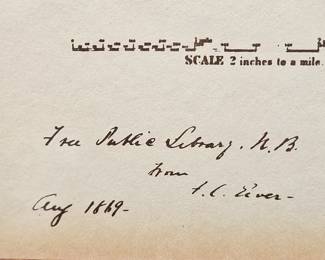 SCALE 2 inches to a mile.
Free Public Library. N.B.
from
Aug 1869-